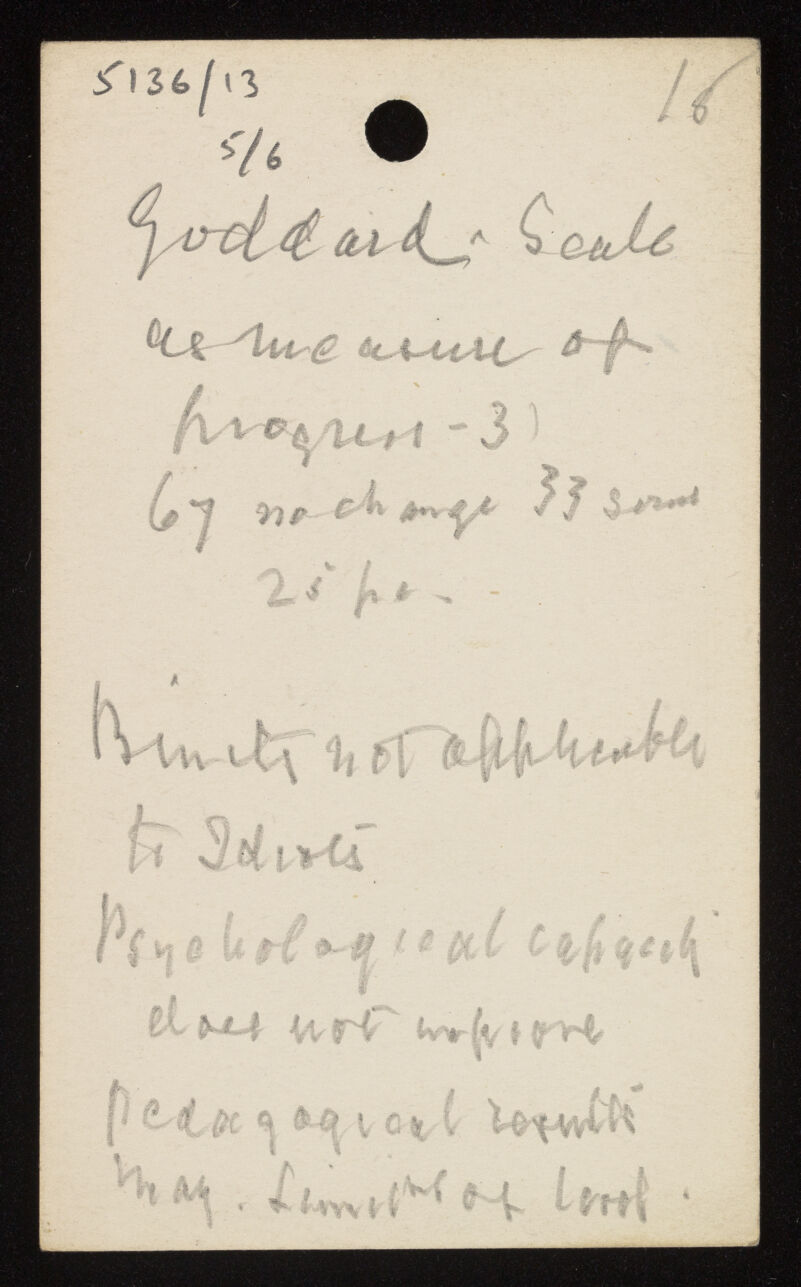 5136/13
16
5/6
Goddard. Scale
as measure of
progress - 3)
67 no change 33 some
25 pc.
Binets not applicable
to Idiots
Psychological capacity
does not improve
Pedagogical results
May. of level.